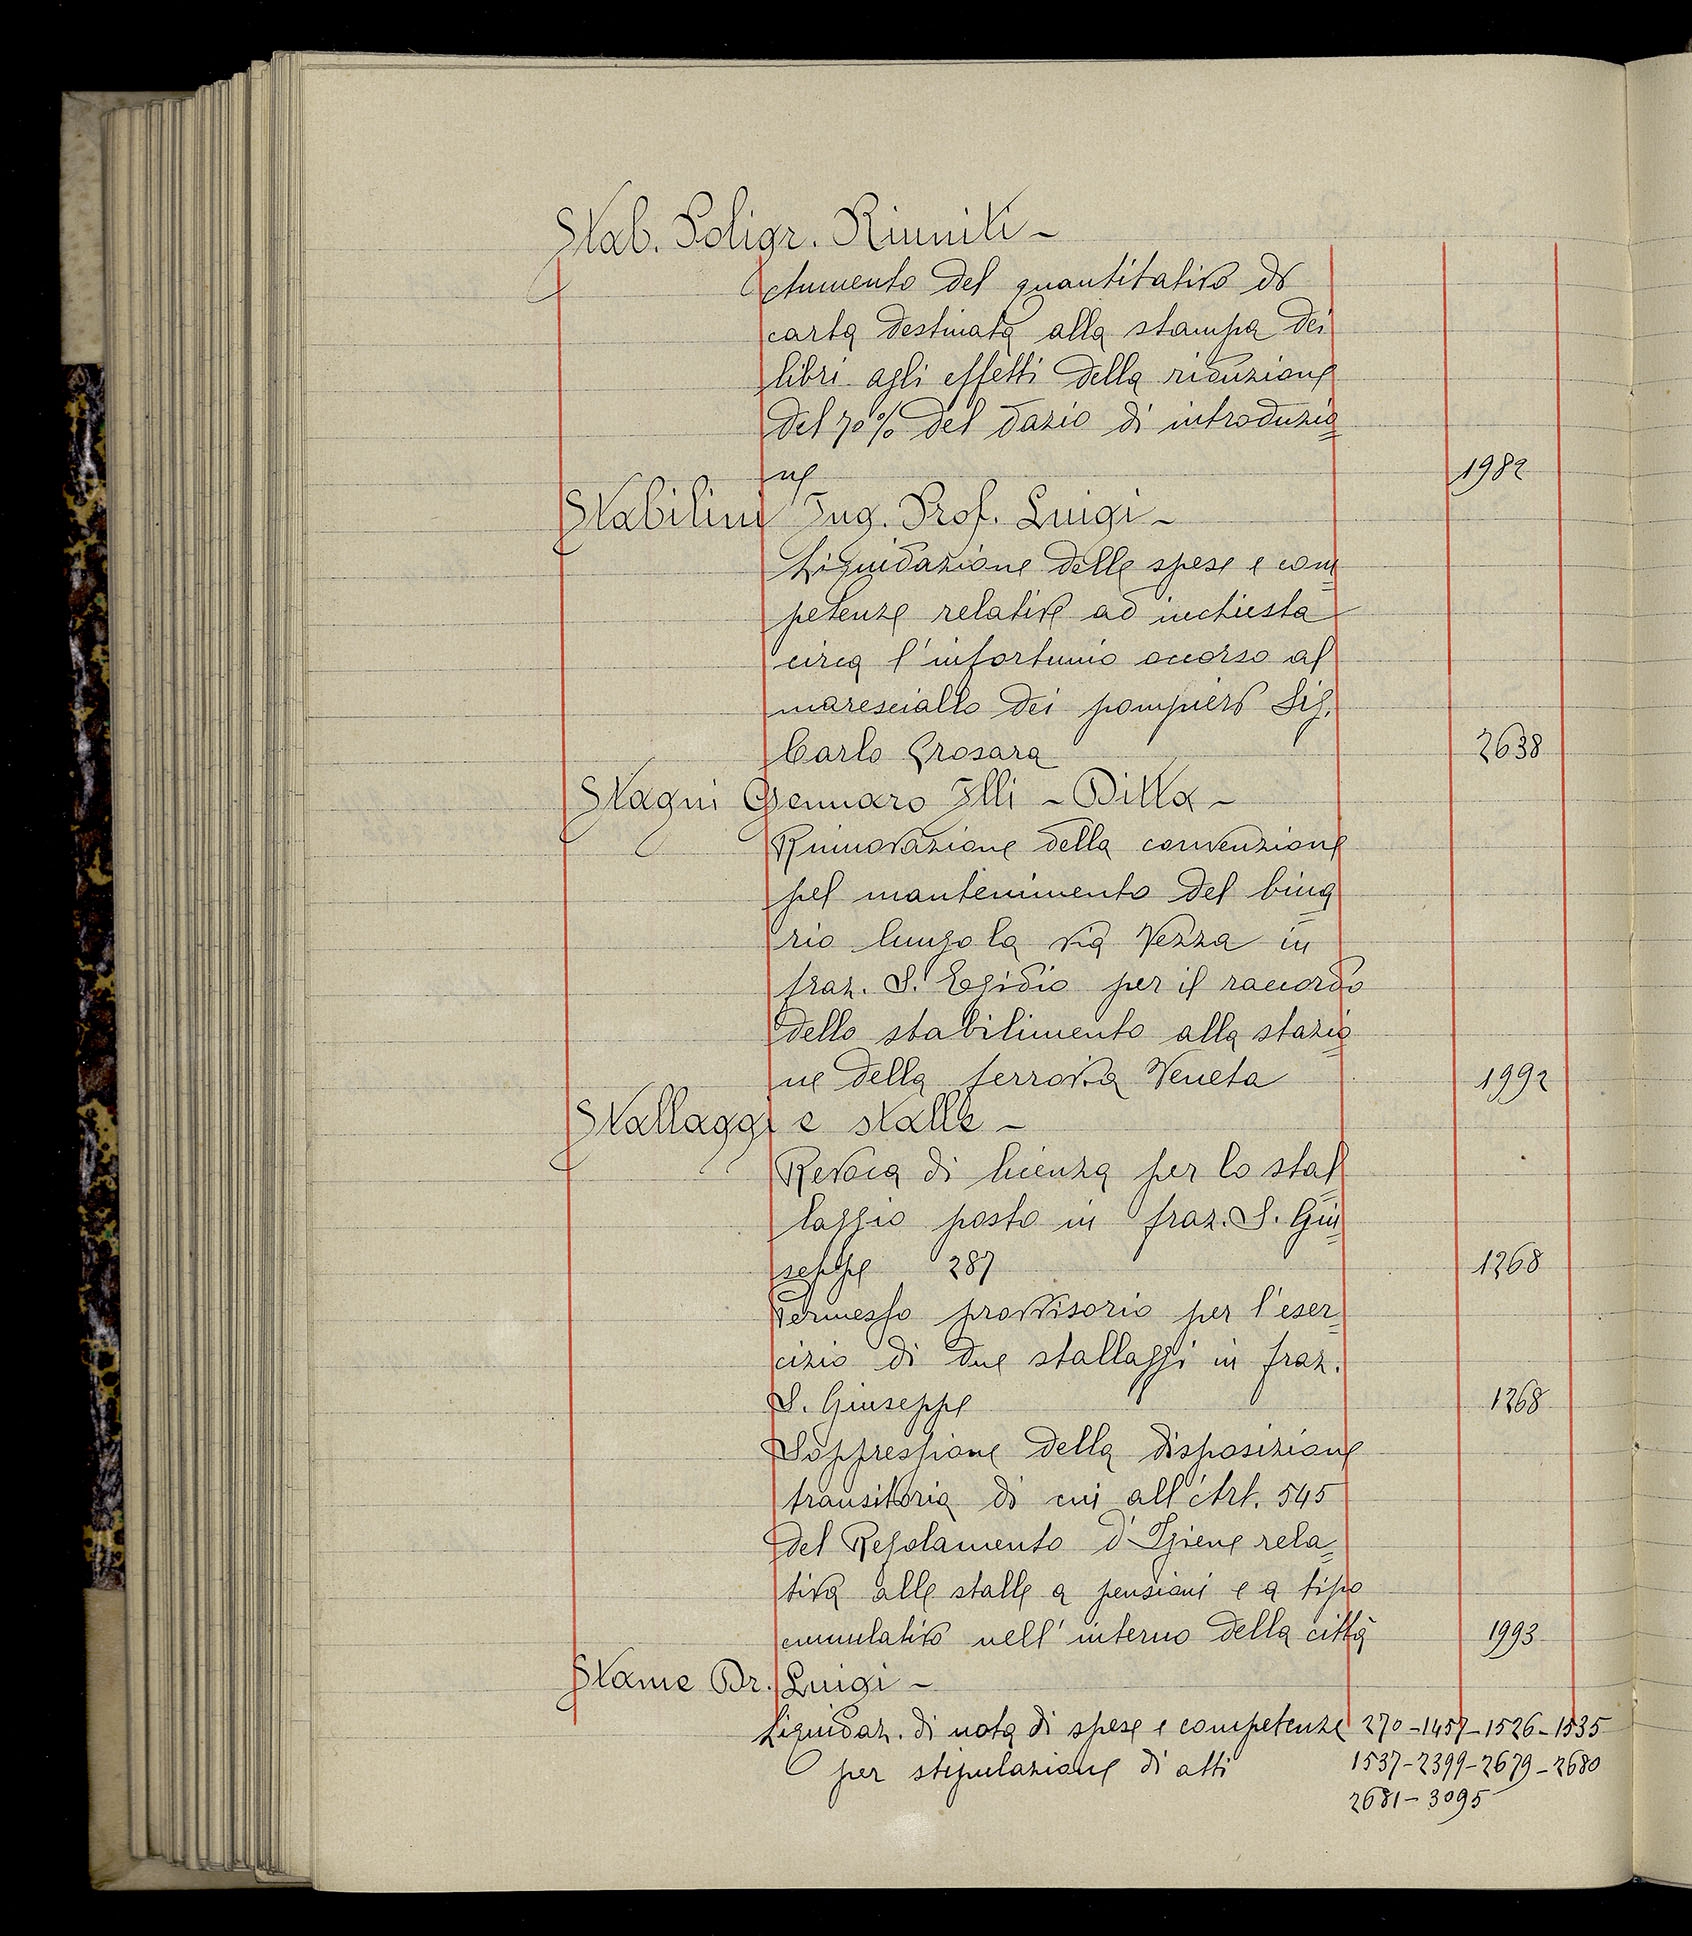 Stab. Poligr. Riuniti -
Aumento del quantitativo di
carta destinata alla stampa dei
libri agli effetti della riduzione
del 70% del dazio di introduzio=
ne 1982
Stabilini Ing. Prof. Luigi -
Liquidazione delle spese e com=
petenze relative ad inchiesta
circa l'infortunio occorso al
maresciallo dei pompieri Sig.
Carlo Grosara 2638
Stagni Gennaro Flli - Ditta -
Rinnovazione della convenzione
pel mantenimento del bina=
rio lungo la via Vezza in
fraz. S. Egidio per il raccordo
dello stabilimento alla stazio=
ne della ferrovia Veneta 1992
Stallaggi e stalle -
Revoca di licenza per lo stal=
laggio posto in fraz. S. Giu=
seppe 287 1268
Permesso provvisorio per l'eser=
cizio di due stallaggi in fraz.
S. Giuseppe 1268
Soppressione della disposizione
transitoria di cui all'Art. 545
del Regolamento d'Igiene rela=
tiva alle stalle a pensioni e a tipo
cumulativo nell'interno della città 1993
Stame Dr. Luigi -
Liquidaz. di nota di spese e competenze 270-1457-1526-1535
per stipulazione di atti 1537-2399-2679-2680
2681-3095